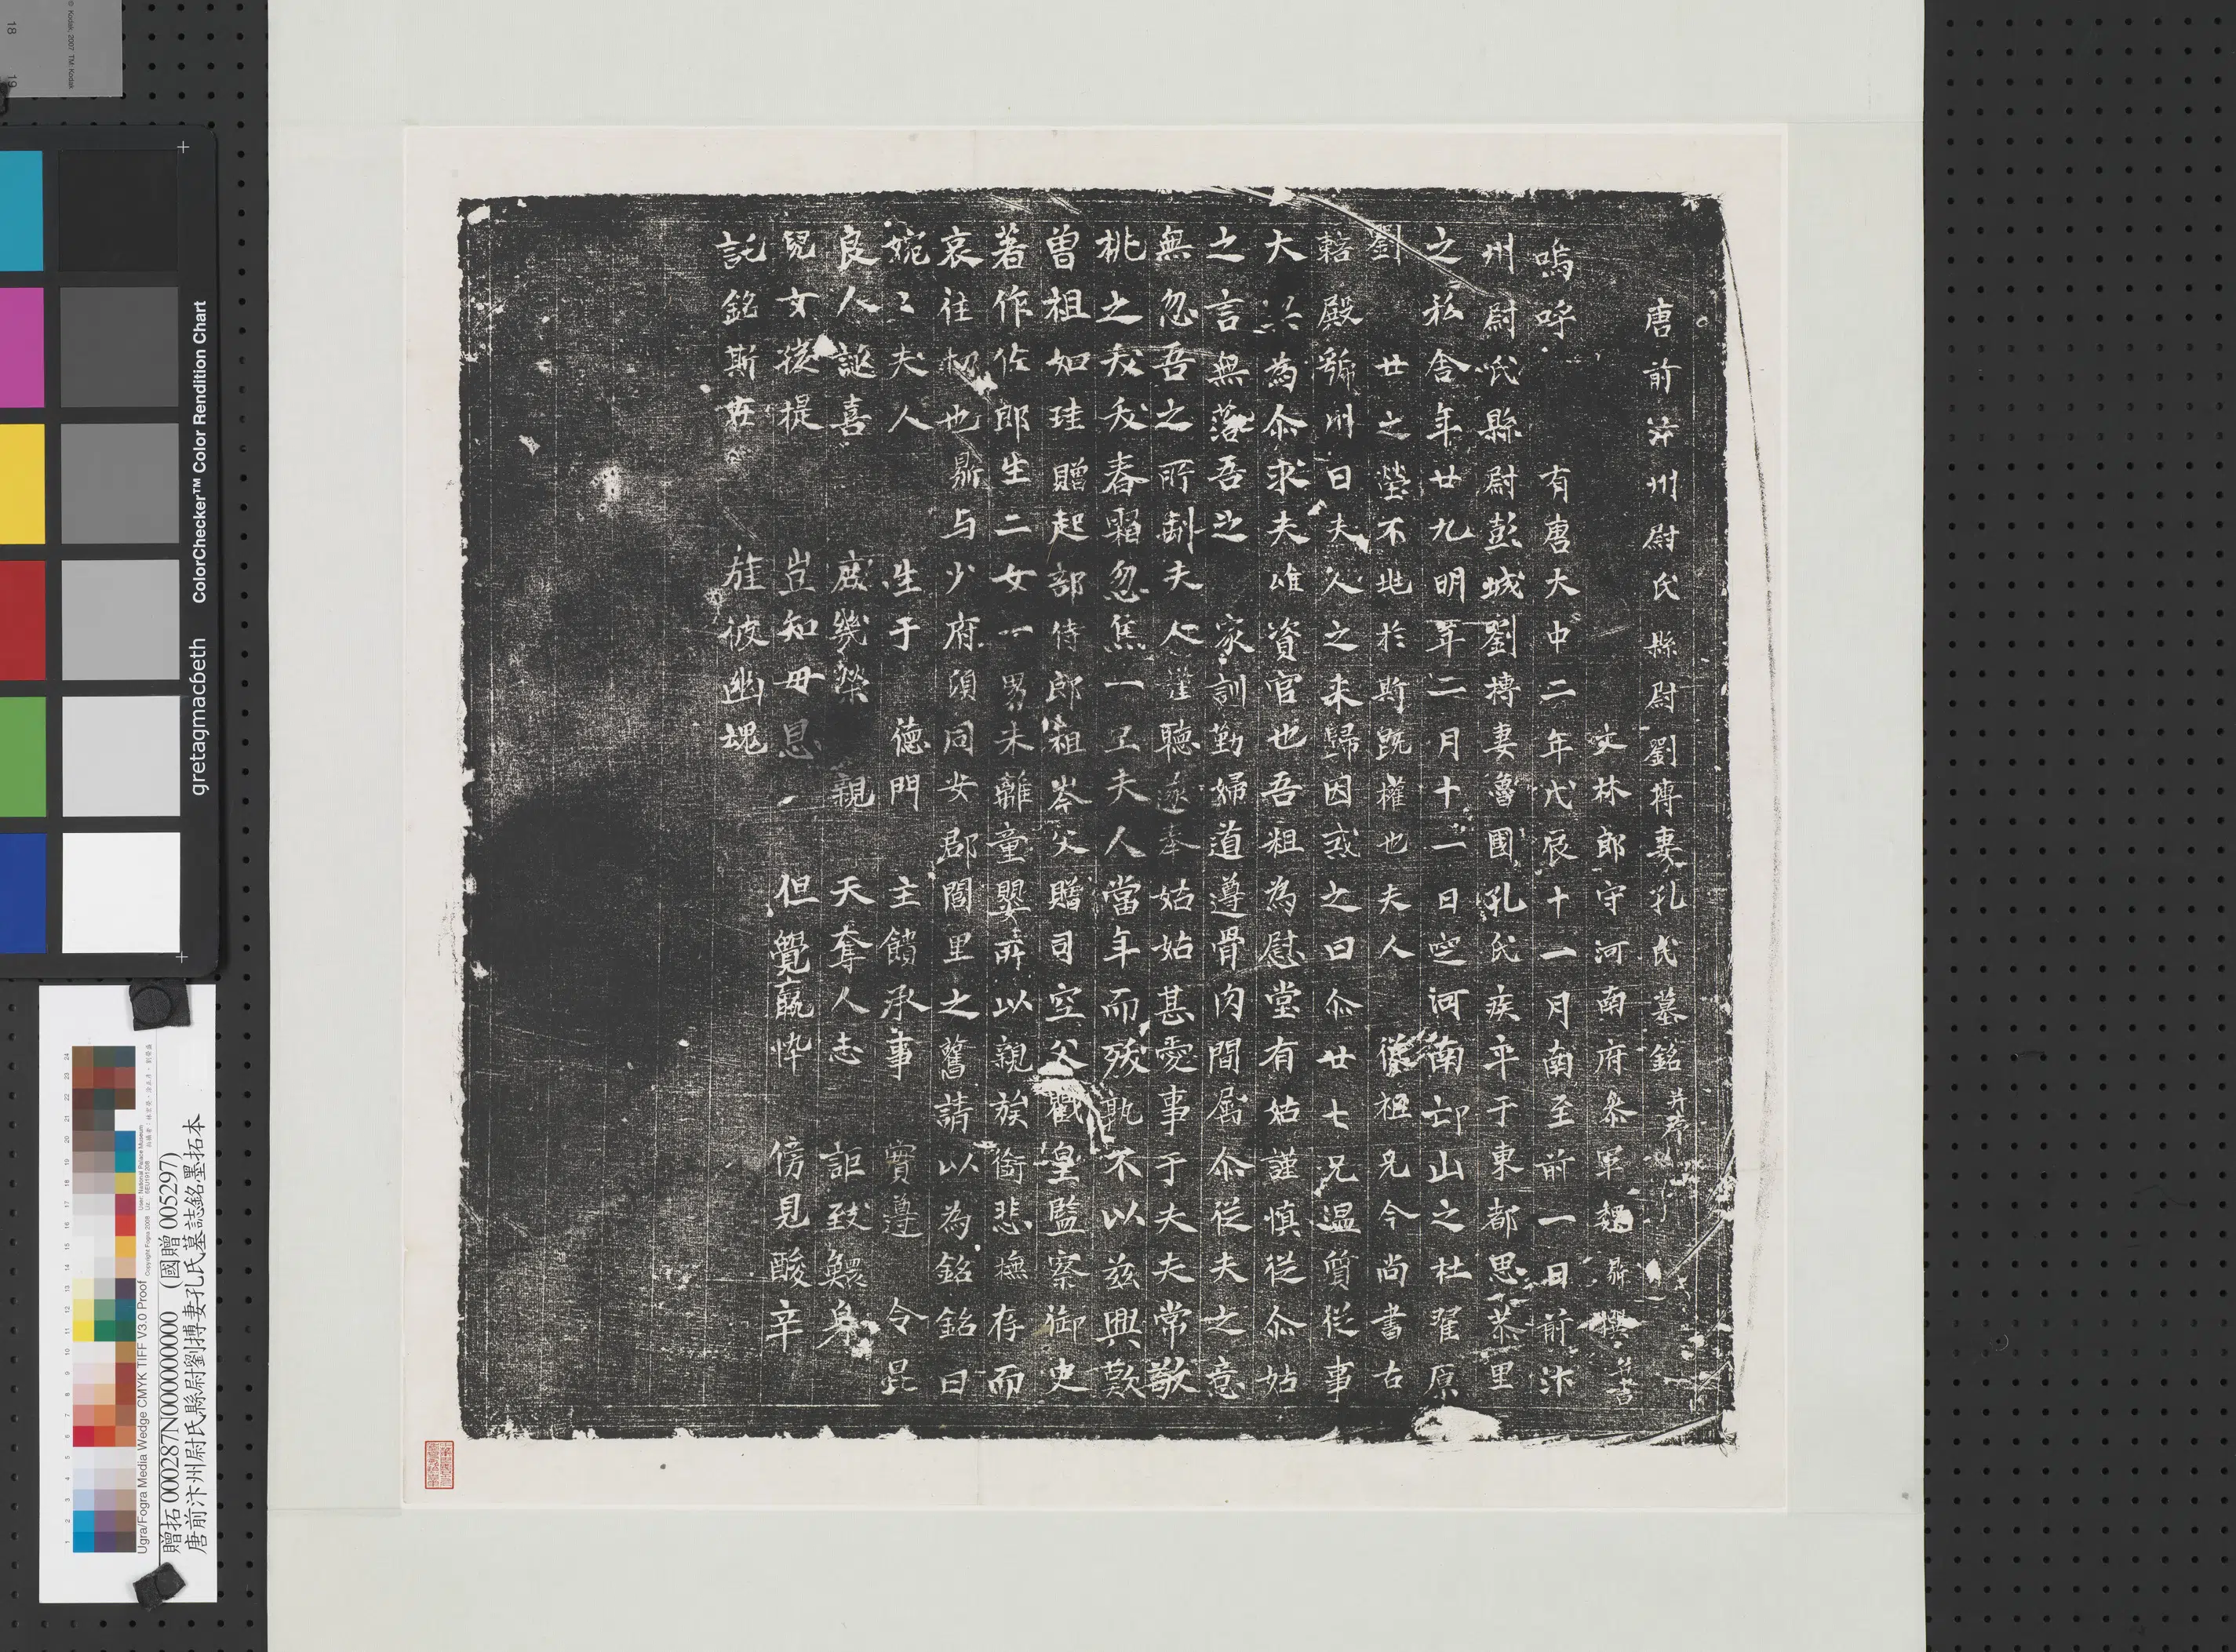 唐前汴州尉氏縣尉劉摶妻孔氏墓銘并序
文林郎守河南府參軍魏鄡撰并書
嗚呼 有唐大中二年戊辰十一月南至前一日前汴
州尉氏縣尉彭城劉摶妻魯國孔氏疾卒于東都思恭里
之私舍年廿九明年二月十二日空河南邙山之杜翟原
劉 廿之塋不地於斯既權也夫人 從祖兄今尚書右
轄 殿號州曰夫人之未歸因或之曰尒廿七兄温質從事
大 為尒求夫雄資官也吾粗為慰堂有姑謹慎從尒姑
之言無落吾之 家訓勤婦道遵骨肉間屬尒從夫之意
無忽吾之所制夫人 聽遂奉姑姑甚愛事于夫夫常敬
桃之夭夭春霜忽焦一 夫人當年而殁孰不以兹興歎
曾祖如珪贈起部侍郎祖岑父贈司空父戵皇監察御史
著作佐郎生二女一男未離童嬰前以親族銜悲撫存而
哀往 也 鄡与少府須同安郡閻里之舊請以為銘銘曰
婉〻夫人 生于德門 主饋承事 實遵令昆
良人誕喜 庶幾榮親 天奪人志 詎致鰥身
兒女孩提 豈知毋恩 但覺羸悴 傍見酸辛
託銘斯在 旌彼幽塊
贈拓 000287N000000000 (國贈 005297)
唐前汴州尉氏縣尉劉搏妻孔氏墓誌銘墨拓本
Ugra/Fogra Media Wedge CMYK TIFF V3.0 Proof
gretagmacbeth ColorChecker™ Color Rendition Chart
© Kodak, 2007 TM: Kodak
18 19